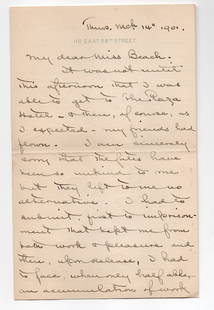 Thurs. Mch 14th 1901.
118 EAST 38TH STREET
My dear Miss Beach.
It was not until
this afternoon that I was
able to get to the Plaza
Hotel - & then, of course, as
I expected - my friends had
flown. I am sincerely
sorry that the fates have
been so unkind to me
but they left to me no
alternative. I had to
submit, first to imprison-
ment that kept me from
both work & pleasure and
then, upon release, I had
to face, when only half able,
an accumulation of work